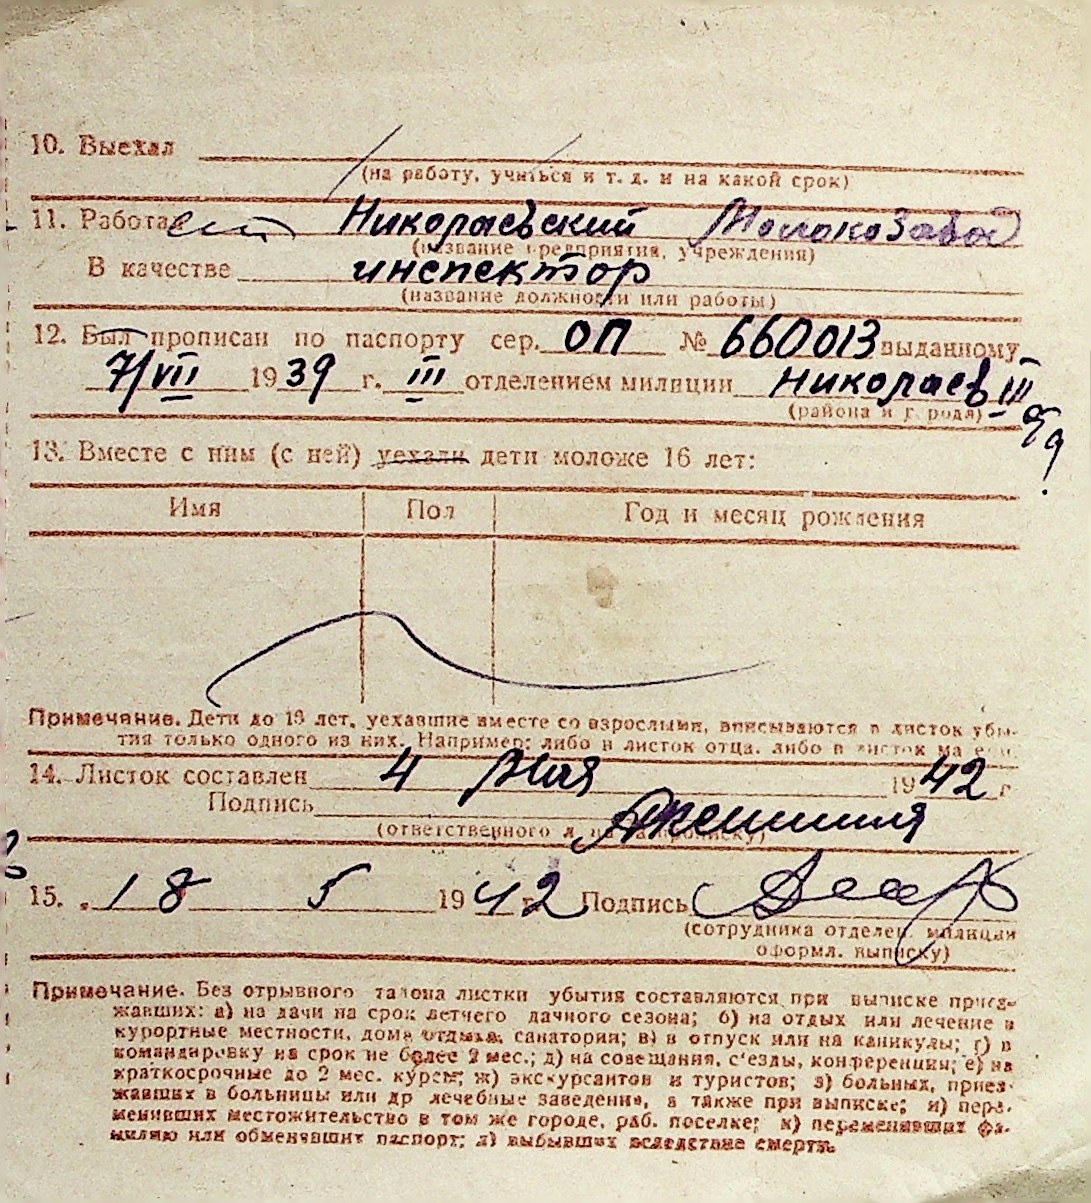 10. Выехал
(на работу, учиться и т. д. и на какой срок)
11. Работает Николаевский Молокозавод
(название предприятия, учреждения)
В качестве инспектор
(название должности или работы)
12. Был прописан по паспорту сер. ОП № 660013 выданному
7/VII 1939 г. III отделением милиции Николаев III
(района и города)
13. Вместе с ним (с ней) уехали дети моложе 16 лет:
Имя Пол Год и месяц рождения
Примечание. Дети до 16 лет, уехавшие вместе со взрослыми, вписываются в листок убы-
тия только одного из них. Например: либо в листок отца, либо в листок матери.
14. Листок составлен 4 Мая 1942 г
Подпись
(ответственного л. за прописку)
15. 18 5 1942 г. Подпись
(сотрудника отделен. милиции
оформл. выписку)
Примечание. Без отрывного талона листки убытия составляются при выписке приез-
жавших: а) на дачи на срок летнего дачного сезона; б) на отдых или лечение в
курортные местности, дома отдыха, санатории; в) в отпуск или на каникулы; г) в
командировку на срок не более 2 мес.; д) на совещания, с'езды, конференции; е) на
краткосрочные до 2 мес. курсы; ж) экскурсантов и туристов; з) больных, приез-
жавших в больницы или др лечебные заведения, а также при выписке; и) пере-
менивших местожительство в том же городе, раб. поселке; к) переменивших фа-
милию или обменявших паспорт; л) выбывших вследствие смерти.